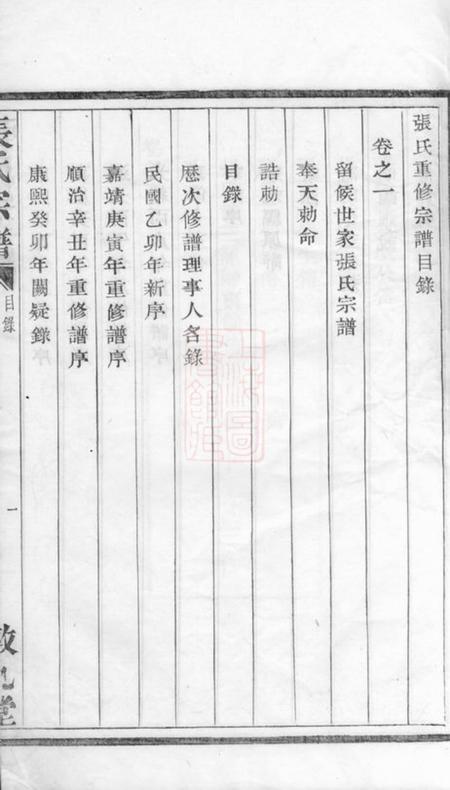 張氏重修宗譜目錄
卷之一
留候世家張氏宗譜
奉天勅命
誥勅
目錄
歷次修譜理事人名錄
民國乙卯年新序
嘉靖庚寅年重修譜序
順治辛丑年重修譜序
康熙癸卯年闕疑錄
張氏宗譜
目錄
一
上海圖書館藏